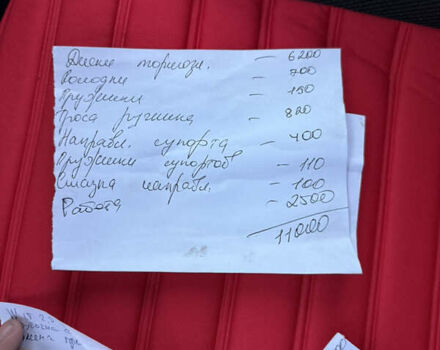 Диски тормозн. - 6200
Колодки - 700
Пружинки - 150
Троса ручника - 820
Направл. супорта - 400
Пружинки супортов - 110
Смазка направл. - 100
Работа - 2500
11000